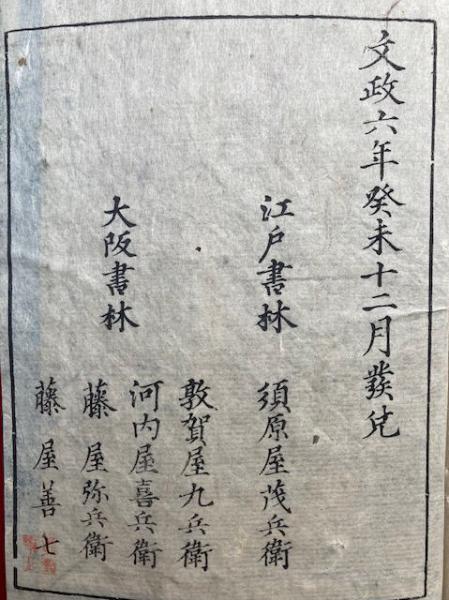 文政六年癸未十二月發兌
江戸書林
須原屋茂兵衛
大阪書林
敦賀屋九兵衛
河内屋喜兵衛
藤屋弥兵衛
藤屋善七